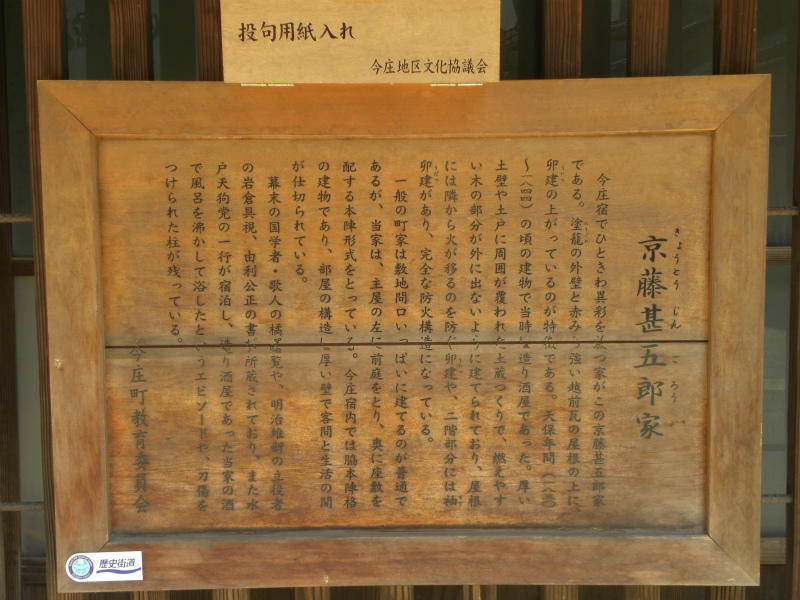 投句用紙入れ
今庄地区文化協議会
京藤甚五郎家
きょうとう じんごろう
今庄宿でひときわ異彩を放つ家がこの京藤甚五郎家
である。塗籠の外壁と赤みの強い越前瓦の屋根の上に、
卯建の上がっているのが特徴である。天保年間(一八三〇
〜一八四四)の頃の建物で当時は造り酒屋であった。厚い
土壁や土戸に周囲が覆われた土蔵つくりで、燃えやす
い木の部分が外に出ないように建てられており、屋根
には隣から火が移るのを防ぐ卯建や、二階部分には袖
卯建があり、完全な防火構造になっている。
一般の町家は敷地間口いっぱいに建てるのが普通で
あるが、当家は、主屋の左に前庭をとり、奥に座敷を
配する本陣形式をとっている。今庄宿内では脇本陣格
の建物であり、部屋の構造は厚い壁で客間と生活の間
が仕切られている。
幕末の国学者・歌人の橘曙覧や、明治維新の立役者
の岩倉具視、由利公正の書が所蔵されており、また水
戸天狗党の一行が宿泊し、造り酒屋であった当家の酒
で風呂を沸かして浴したというエピソードや、刀傷を
つけられた柱が残っている。
今庄町教育委員会
歴史街道